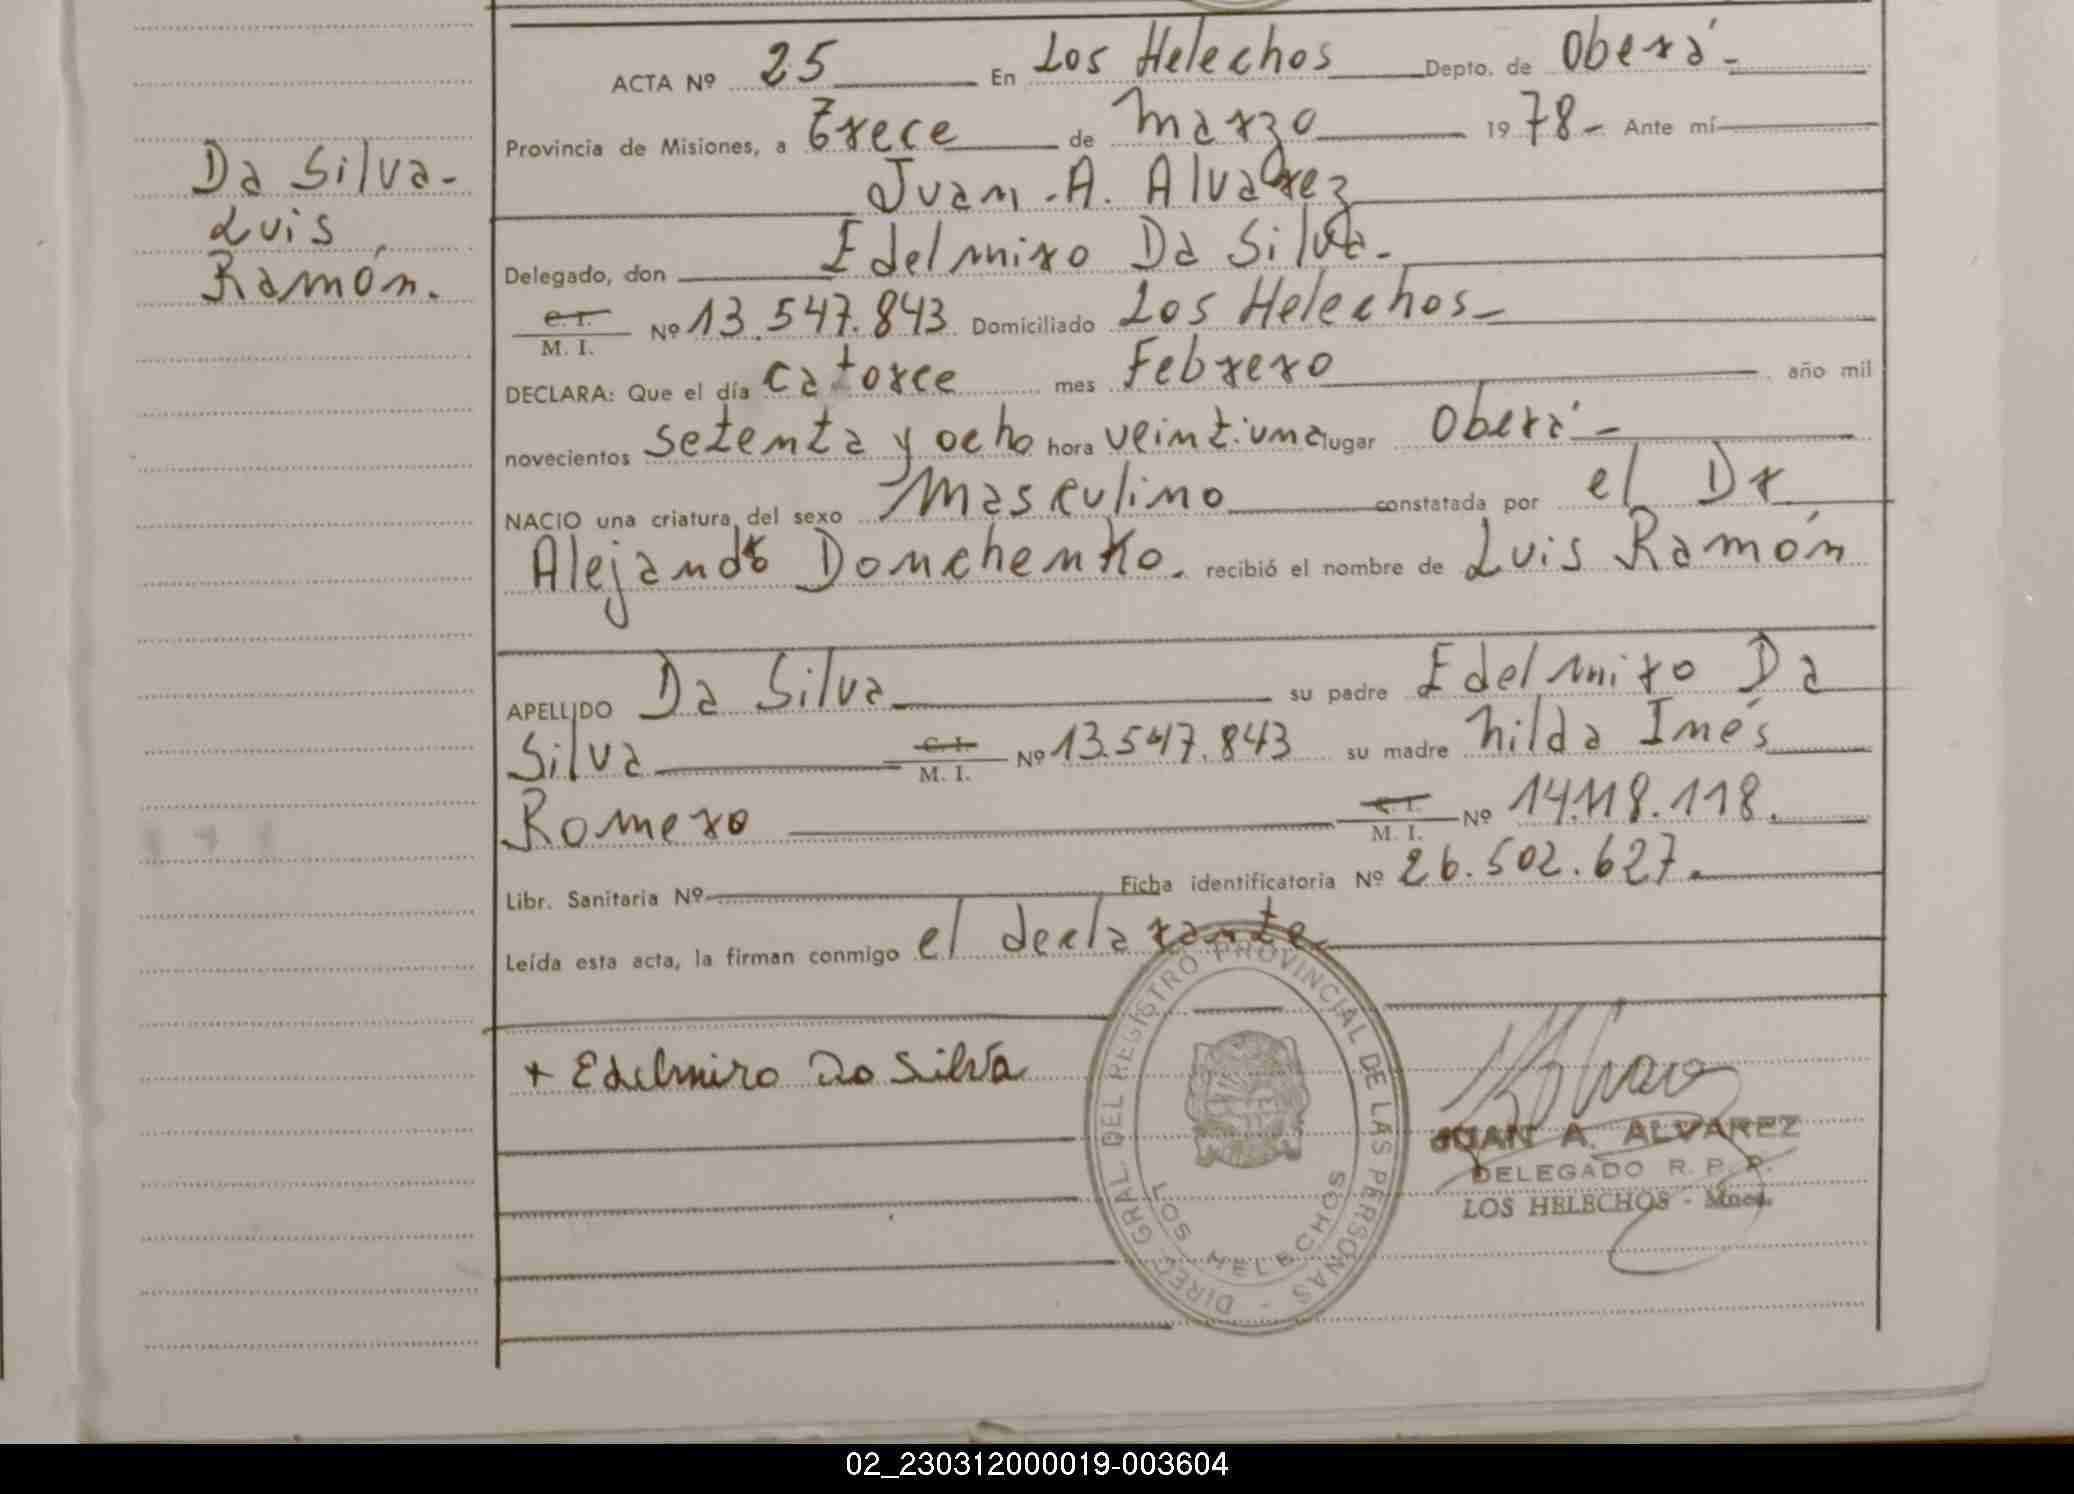 Da Silva-
Luis
Ramón.
ACTA Nº 25 En Los Helechos Depto. de Oberá-
Provincia de Misiones, a trece de Marzo 1978- Ante mí
Juan -A. Alvarez
Delegado, don Edelmiro Da Silva.-
C. I. M. I. Nº 13.547.843 Domiciliado Los Helechos-
DECLARA: Que el día catorce mes Febrero año mil
novecientos setenta y ocho hora veintiuna lugar Oberá-
NACIO una criatura del sexo Masculino constatada por el Dr
Alejandro Donchenko. recibió el nombre de Luis Ramón
APELLIDO Da Silva su padre Edelmiro Da
Silva C. I. M. I. Nº 13.547.843 su madre Nilda Inés
Romero C. I. M. I. Nº 14.118.118.
Libr. Sanitaria Nº Ficha identificatoria Nº 26.502.627.
Leída esta acta, la firman conmigo el declarante
+ Edelmiro Da Silva
DIREC. GRAL DEL REGISTRO PROVINCIAL DE LAS PERSONAS -
LOS HELECHOS
JUAN A. ALVAREZ
DELEGADO R. P. P.
LOS HELECHOS - Mnes.
02_230312000019-003604